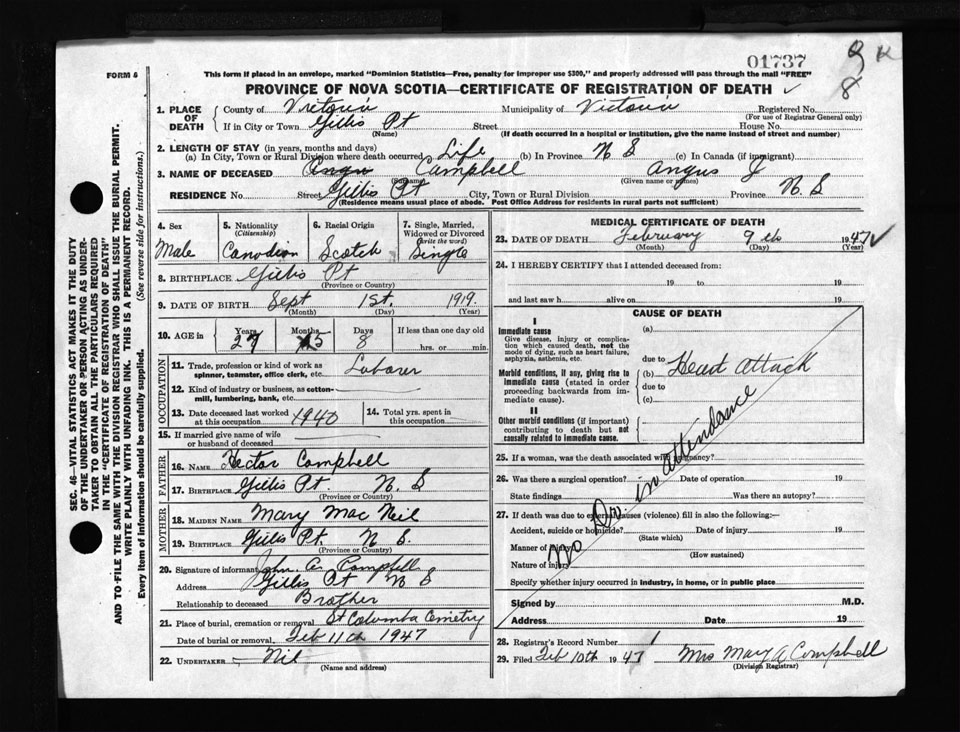 01737
9 K
8
FORM 6
This form if placed in an envelope, marked "Dominion Statistics—Free, penalty for improper use $300," and properly addressed will pass through the mail "FREE"
PROVINCE OF NOVA SCOTIA—CERTIFICATE OF REGISTRATION OF DEATH ✓
1. PLACE OF DEATH County of Victoria Municipality of Victoria Registered No.
(For use of Registrar General only)
If in City or Town Gillis Pt Street House No.
(Name) (If death occurred in a hospital or institution, give the name instead of street and number)
2. LENGTH OF STAY (in years, months and days)
(a) In City, Town or Rural Division where death occurred Life (b) In Province N S (c) In Canada (if immigrant)
3. NAME OF DECEASED Angu Campbell Angus J
(Surname) (Given name or names)
RESIDENCE No. Street Gillis Pt City, Town or Rural Division Province N. S
(Residence means usual place of abode. Post Office Address for residents in rural parts not sufficient)
4. Sex 5. Nationality (Citizenship) 6. Racial Origin 7. Single, Married, Widowed or Divorced (write the word)
Male Canadian Scotch Single
8. BIRTHPLACE Gillis Pt
(Province or Country)
9. DATE OF BIRTH Sept 1st. 1919.
(Month) (Day) (Year)
10. AGE in Years Months Days If less than one day old
27 5 8 hrs. or min.
OCCUPATION
11. Trade, profession or kind of work as spinner, teamster, office clerk, etc. Laborer
12. Kind of industry or business, as cotton-mill, lumbering, bank, etc.
13. Date deceased last worked at this occupation 1940 14. Total yrs. spent in this occupation
15. If married give name of wife or husband of deceased
FATHER
16. NAME Hector Campbell
17. BIRTHPLACE Gillis Pt. N. S
(Province or Country)
MOTHER
18. MAIDEN NAME Mary Mac Neil
19. BIRTHPLACE Gillis Pt. N S.
(Province or Country)
20. Signature of informant John C. Campbell
Address Gillis Pt N S
Relationship to deceased Brother
21. Place of burial, cremation or removal St Columba Cemetry
Date of burial or removal Feb 11th 1947
22. UNDERTAKER Nil
(Name and address)
MEDICAL CERTIFICATE OF DEATH
23. DATE OF DEATH February 9 th 1947 ✓
(Month) (Day) (Year)
24. I HEREBY CERTIFY that I attended deceased from:
19 to 19
and last saw h alive on 19
CAUSE OF DEATH
I
Immediate cause (a)
Give disease, injury or complication which caused death, not the mode of dying, such as heart failure, asphyxia, asthenia, etc.
due to
Morbid conditions, if any, giving rise to immediate cause (stated in order proceeding backwards from immediate cause). (b) Heart Attack
due to
(c)
II
Other morbid conditions (if important) contributing to death but not causally related to immediate cause.
No Dr. in attendance
25. If a woman, was the death associated with pregnancy?
26. Was there a surgical operation? Date of operation 19
State findings Was there an autopsy?
27. If death was due to external causes (violence) fill in also the following:—
Accident, suicide or homicide? Date of injury 19
(State which)
Manner of injury
(How sustained)
Nature of injury
Specify whether injury occurred in industry, in home, or in public place
Signed by M.D.
Address Date 19
28. Registrar's Record Number 1
29. Filed Feb 10th 1947 Mrs Mary A Campbell
(Division Registrar)
SEC. 46—VITAL STATISTICS ACT MAKES IT THE DUTY
OF THE UNDERTAKER OR PERSON ACTING AS UNDER-
TAKER TO OBTAIN ALL THE PARTICULARS REQUIRED
IN THE "CERTIFICATE OF REGISTRATION OF DEATH"
AND TO FILE THE SAME WITH THE DIVISION REGISTRAR WHO SHALL ISSUE THE BURIAL PERMIT.
WRITE PLAINLY WITH UNFADING INK. THIS IS A PERMANENT RECORD.
Every item of information should be carefully supplied. (See reverse side for instructions.)